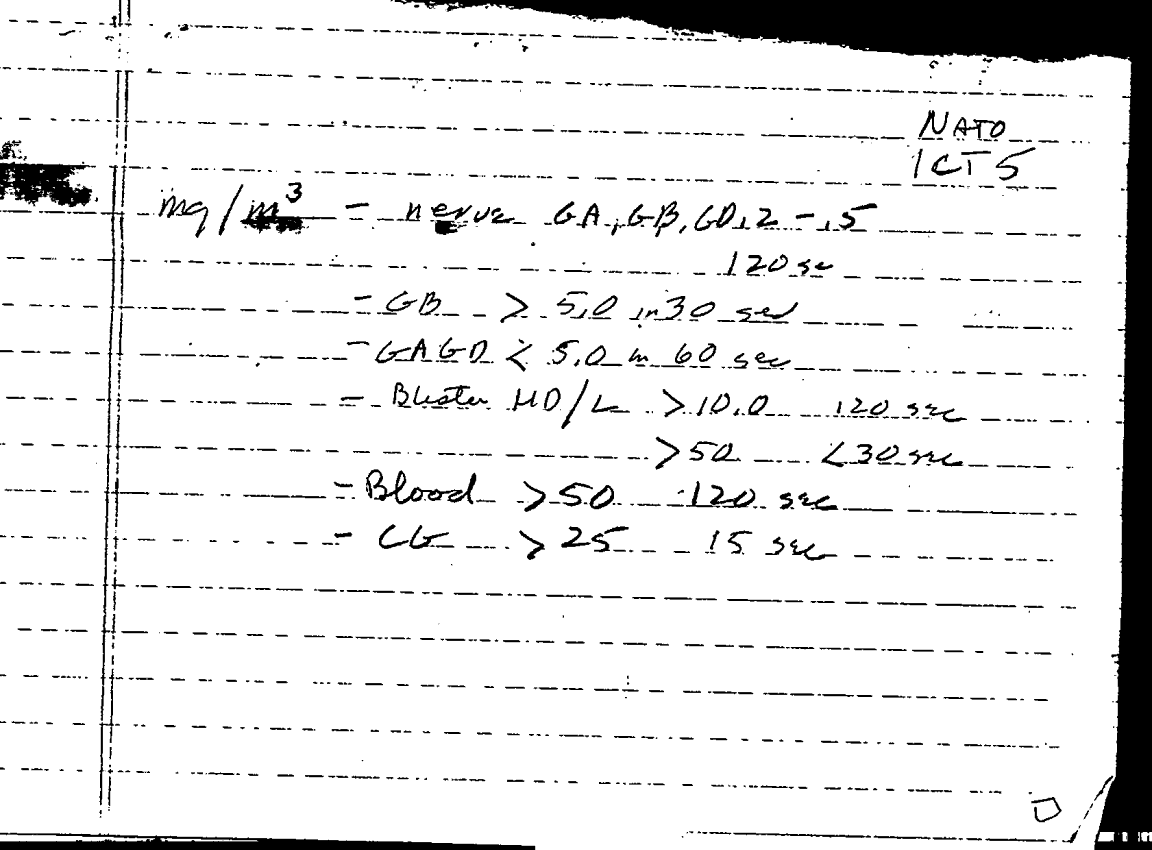 NATO
ICT5
mg/m³ - nerve GA, GB, GD .2 - .5
120 sec
- GB > 5.0 in 30 sec
- GA GD < 5.0 in 60 sec
- Blister HD/L > 10.0 120 sec
> 50 < 30 sec
- Blood > 50 120 sec
- CG > 25 15 sec